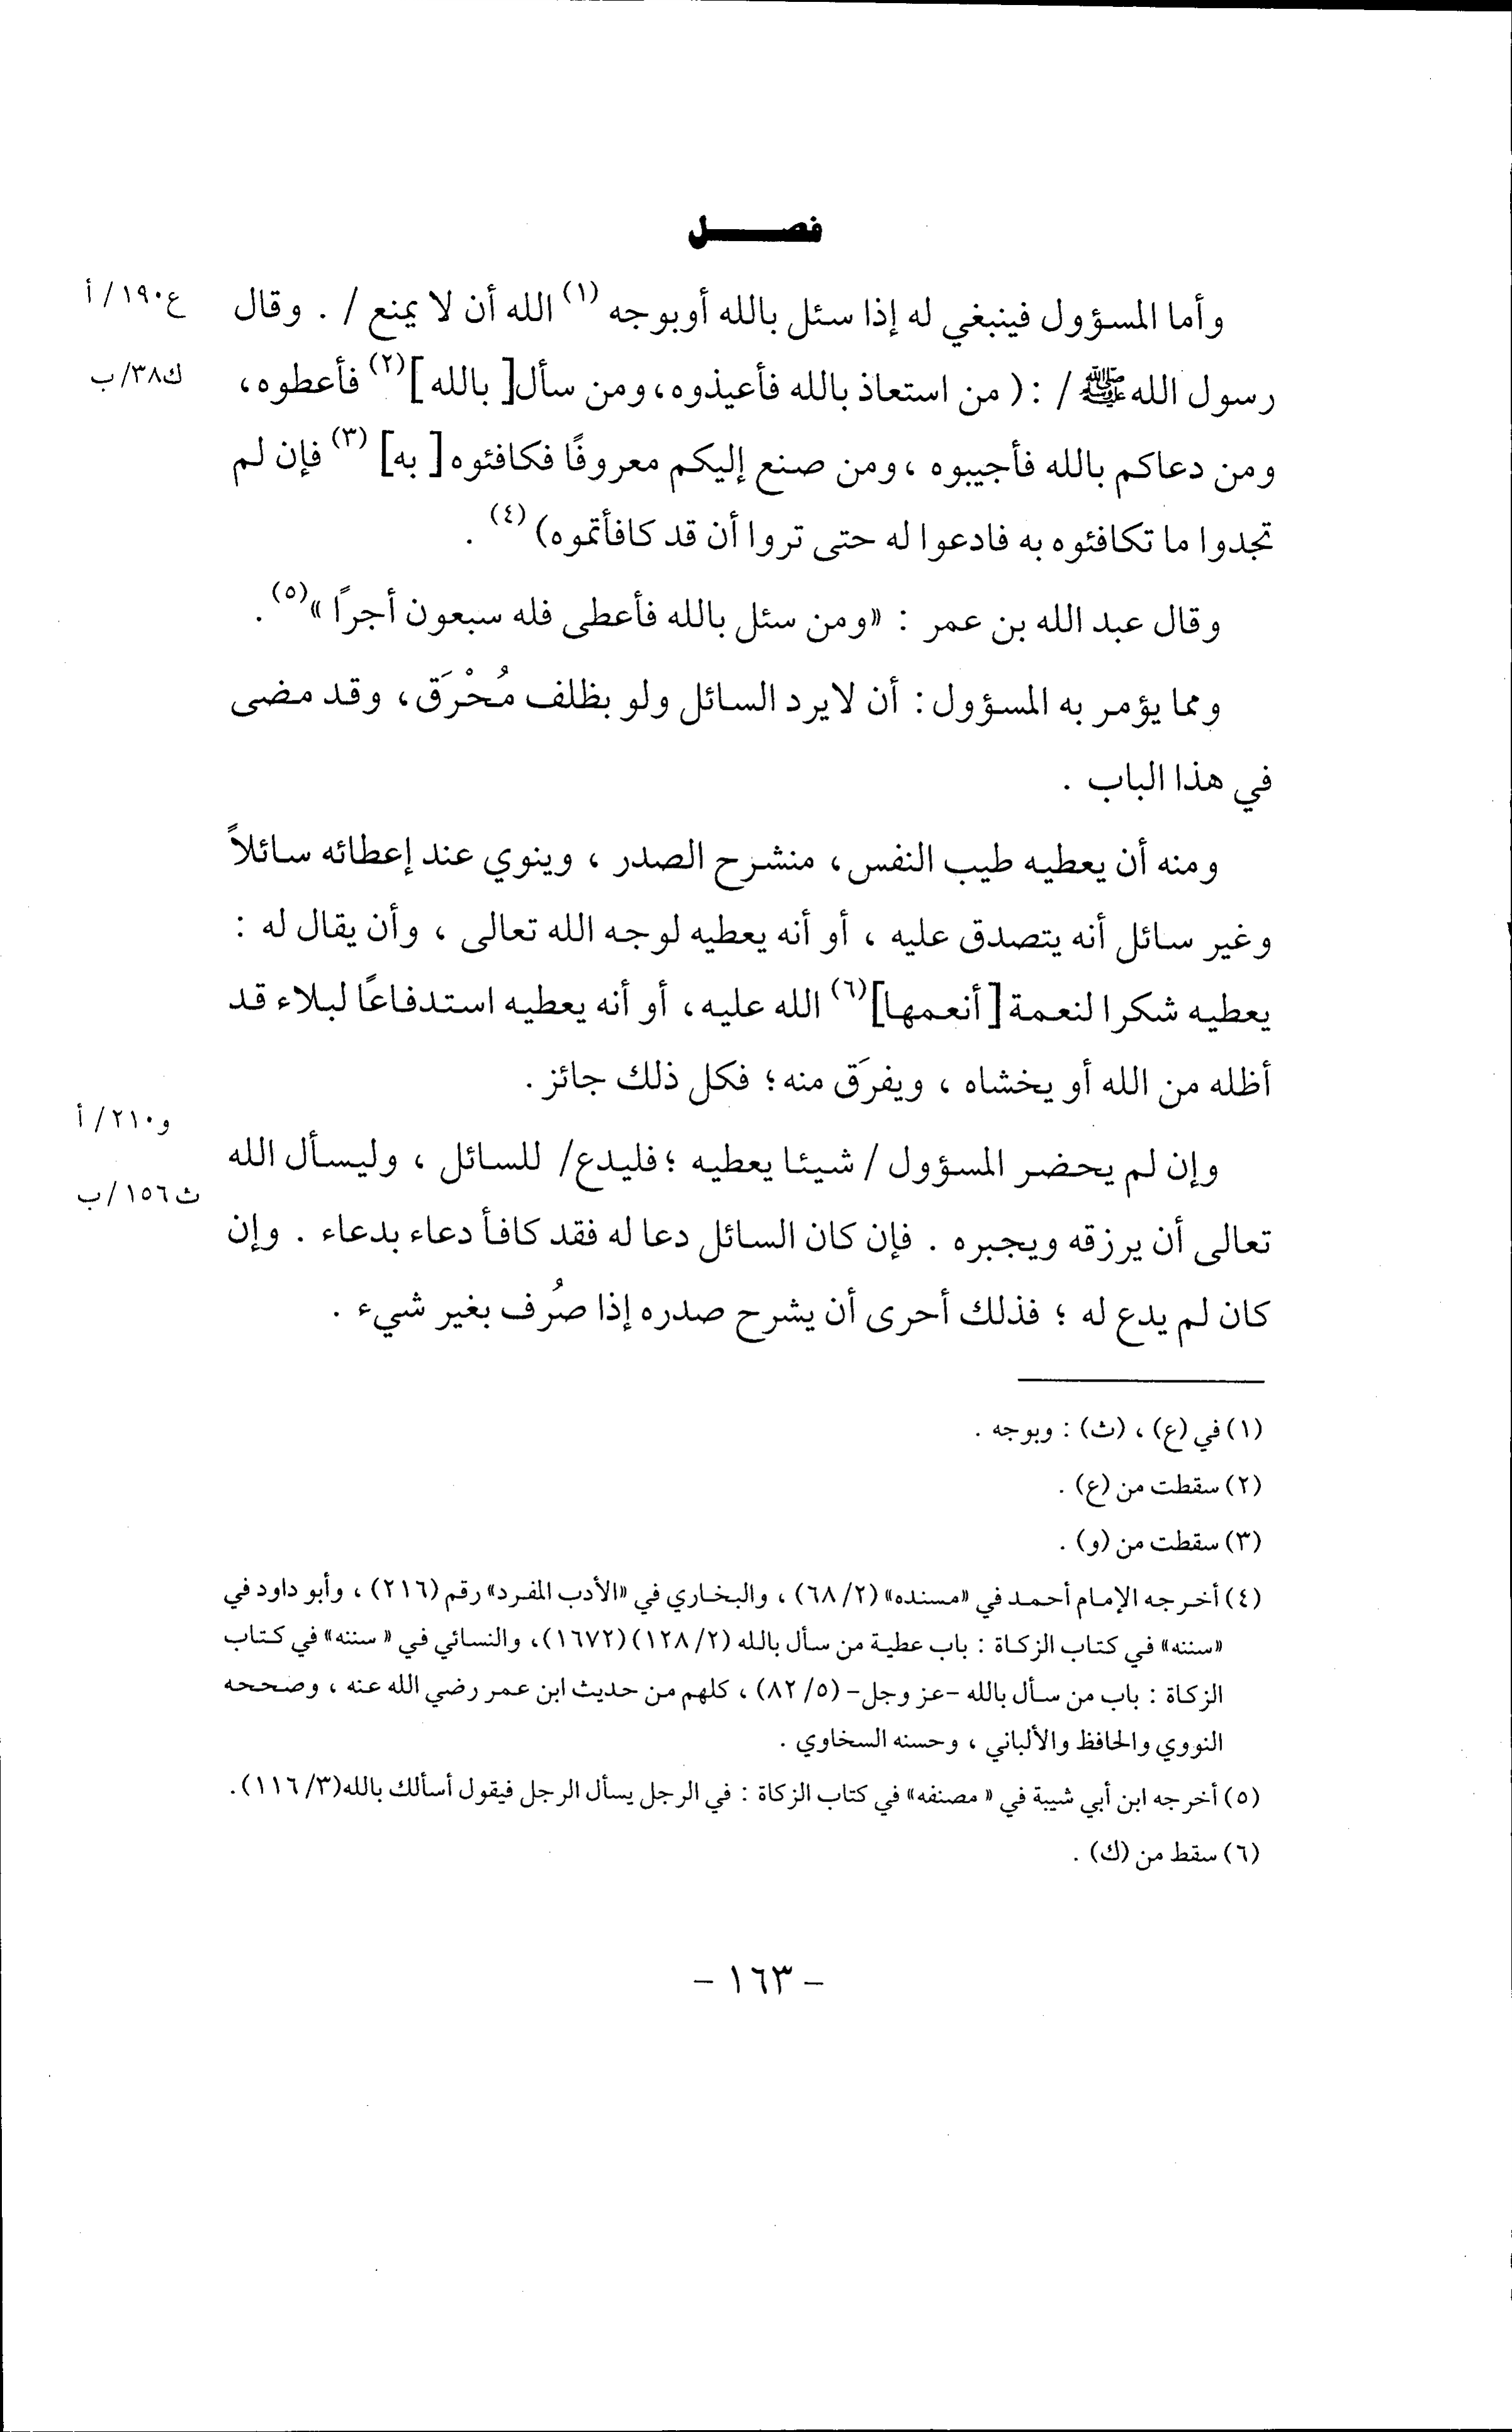 فصــــل
وأما المسؤول فينبغي له إذا سئل بالله أوبوجه (١) الله أن لا يمنع / . وقال
ع١٩٠/ أ
رسول الله ﷺ / : ( من استعاذ بالله فأعيذوه، ومن سأل[ بالله ](٢) فأعطوه،
ك٣٨/ ب
ومن دعاكم بالله فأجيبوه ، ومن صنع إليكم معروفًا فكافئوه[ به] (٣) فإن لم
تجدوا ما تكافئوه به فادعوا له حتى تروا أن قد كافأتموه) (٤) .
وقال عبد الله بن عمر : «ومن سئل بالله فأعطى فله سبعون أجرًا »(٥) .
ومما يؤمر به المسؤول : أن لايرد السائل ولو بظلف مُحْرَق، وقد مضى
في هذا الباب .
ومنه أن يعطيه طيب النفس، منشرح الصدر ، وينوي عند إعطائه سائلاً
وغير سائل أنه يتصدق عليه ، أو أنه يعطيه لوجه الله تعالى ، وأن يقال له :
يعطيه شكرا لنعمة[ أنعمها](٦) الله عليه، أو أنه يعطيه استدفاعًا لبلاء قد
أظله من الله أو يخشاه ، ويفرَق منه؛ فكل ذلك جائز .
و٢١٠/ أ
وإن لم يحضر المسؤول / شيئا يعطيه ؛ فليدع/ للسائل ، وليسأل الله
ث١٥٦/ب
تعالى أن يرزقه ويجبره . فإن كان السائل دعا له فقد كافأ دعاء بدعاء . وإن
كان لم يدع له ؛ فذلك أحرى أن يشرح صدره إذا صُرف بغير شيء .
(١) في (ع) ، (ث) : وبوجه .
(٢) سقطت من (ع) .
(٣) سقطت من (و) .
(٤) أخرجه الإمام أحمد في «مسنده» (٢/ ٦٨) ، والبخاري في «الأدب المفرد» رقم (٢١٦) ، وأبو داود في
«سننه» في كتاب الزكاة : باب عطية من سأل بالله (٢/ ١٢٨) (١٦٧٢)، والنسائي في « سننه» في كتاب
الزكاة : باب من سأل بالله -عز وجل- (٥/ ٨٢) ، كلهم من حديث ابن عمر رضي الله عنه ، وصححه
النووي والحافظ والألباني ، وحسنه السخاوي .
(٥) أخرجه ابن أبي شيبة في « مصنفه» في كتاب الزكاة : في الرجل يسأل الرجل فيقول أسألك بالله(٣/ ١١٦) .
(٦) سقط من (ك) .
- ١٦٣ -